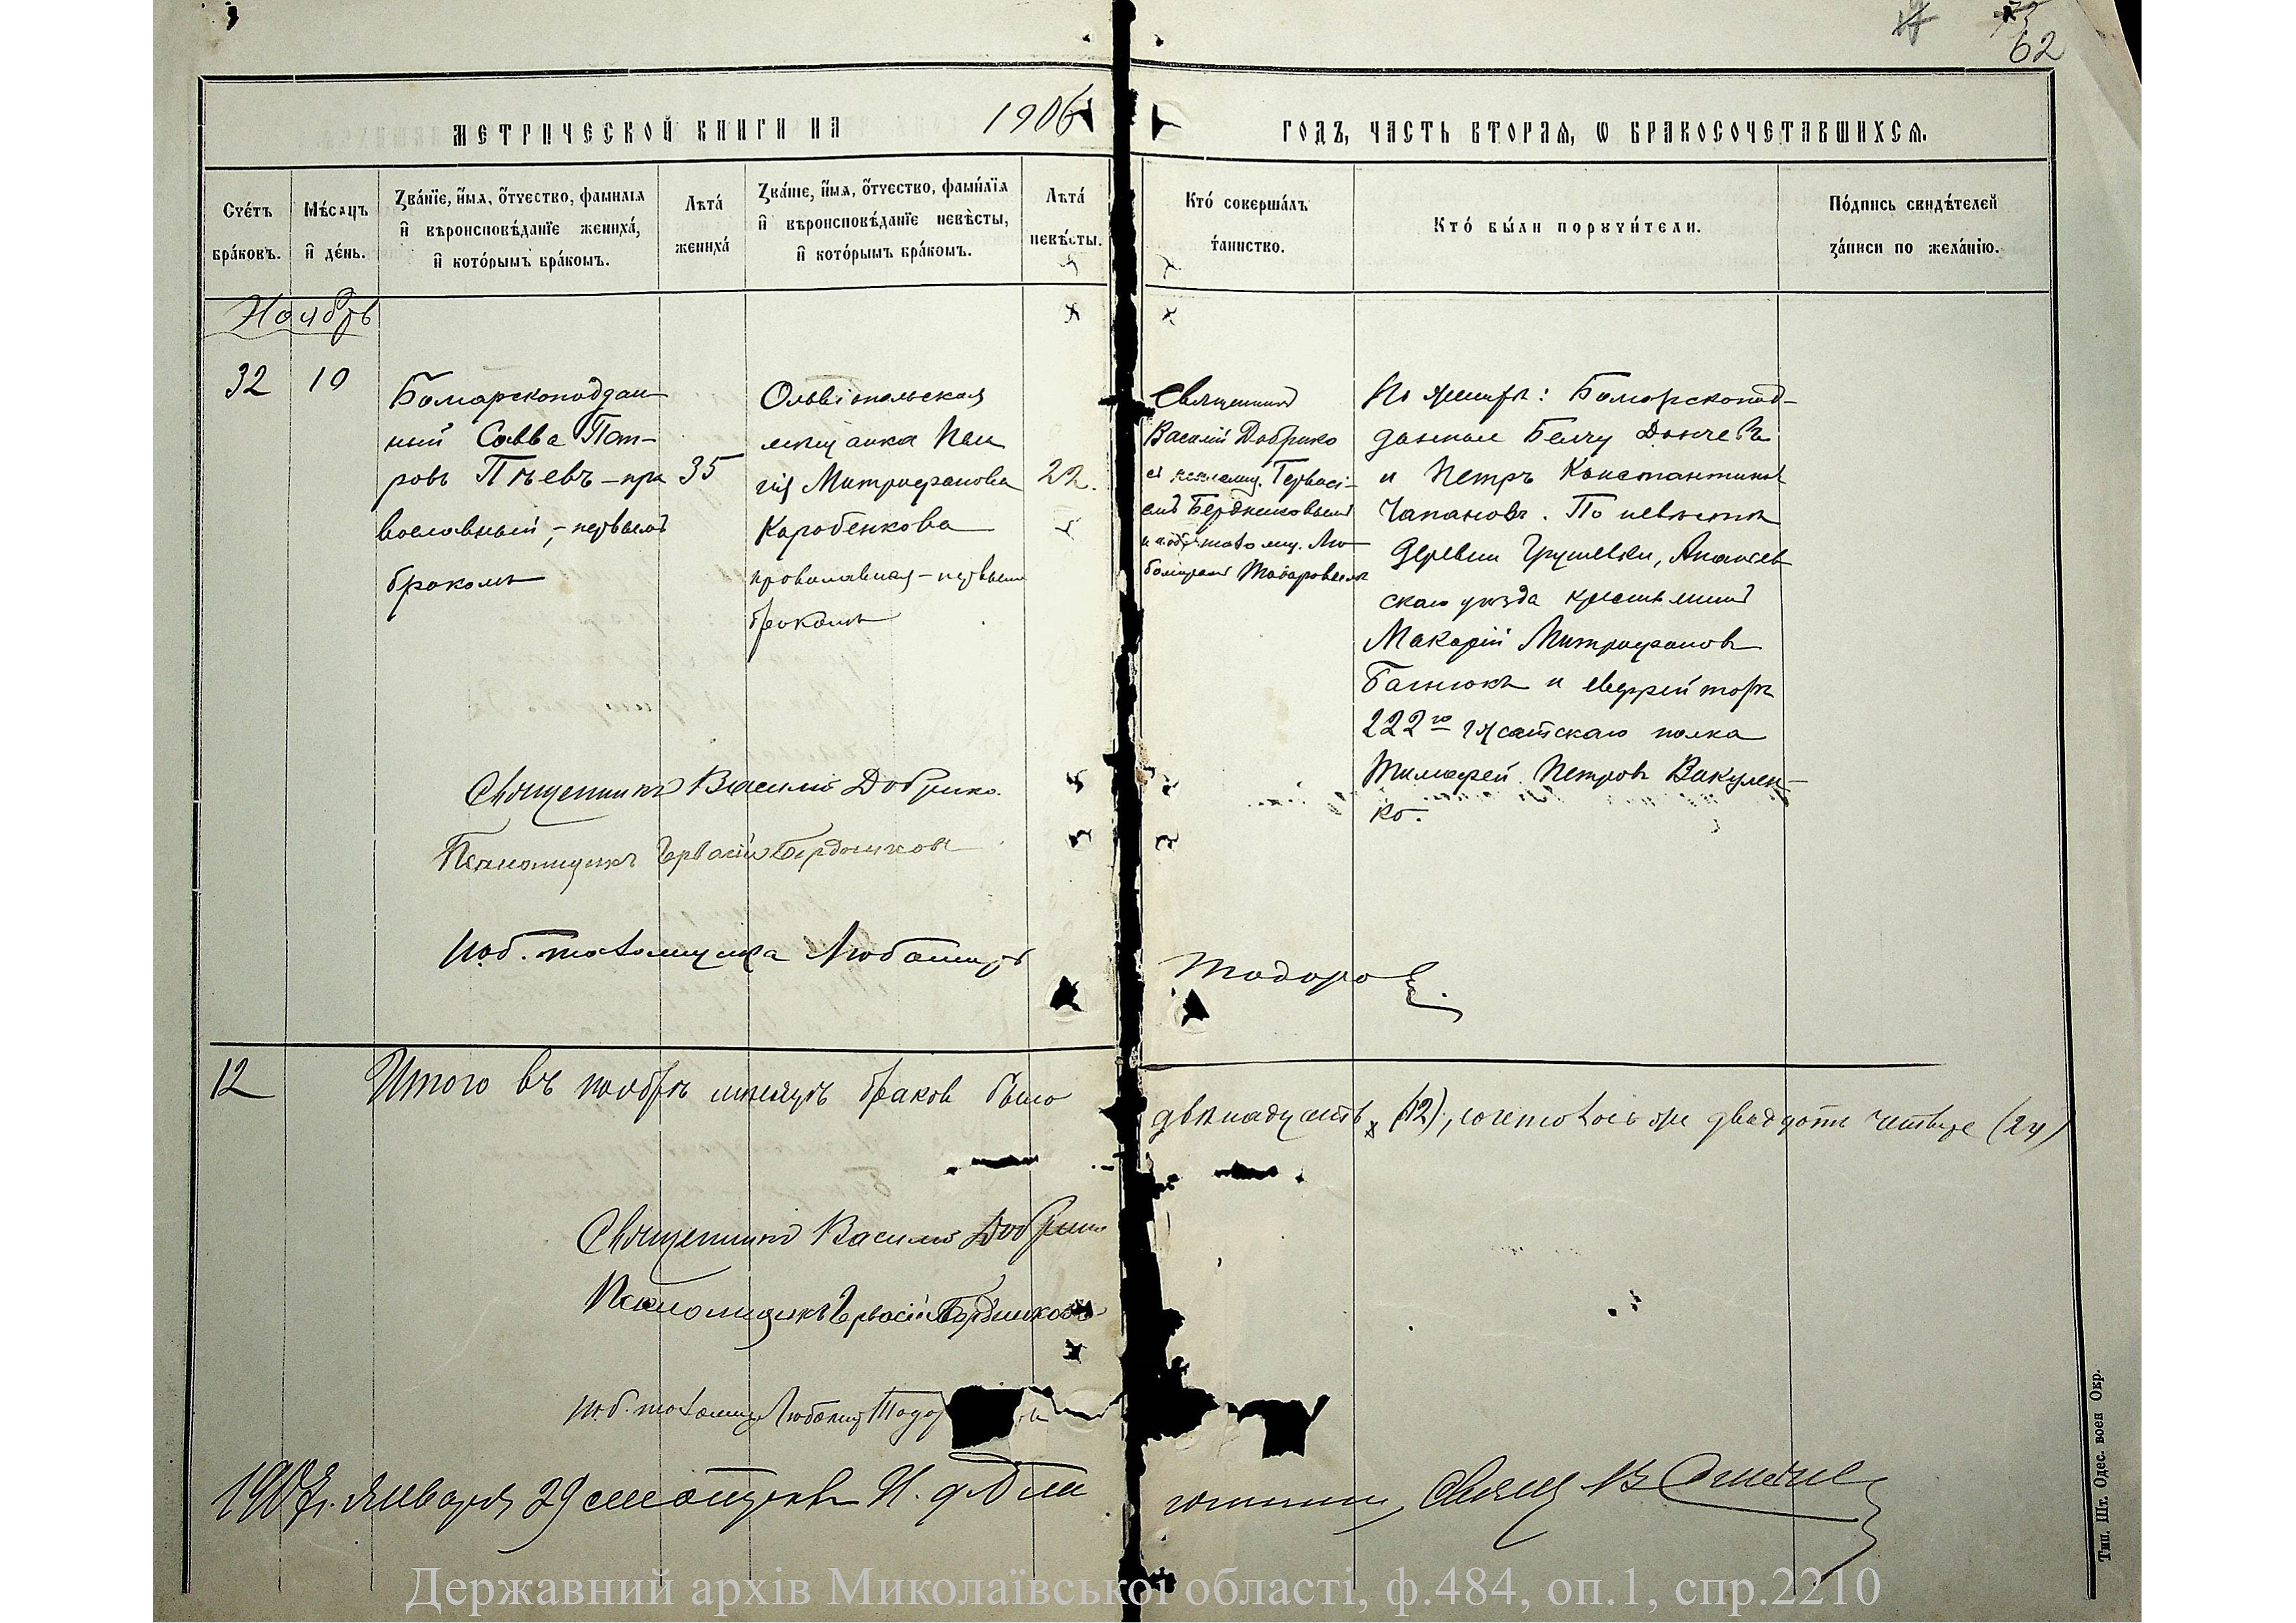 62
МЕТРИЧЕСКОЙ КНИГИ НА 1906 ГОДЪ, ЧАСТЬ ВТОРАЯ, Ѡ БРАКОСОЧЕТАВШИХСЯ.
Счетъ браковъ.
Мѣсяцъ и день.
Званіе, имя, отчество, фамилія и вѣроисповѣданіе жениха, и которымъ бракомъ.
Лѣта жениха
Званіе, имя, отчество, фамилія и вѣроисповѣданіе невѣсты, и которымъ бракомъ.
Лѣта невѣсты.
Кто совершалъ таинство.
Кто были поручители.
Подпись свидѣтелей записи по желанію.
Ноябрь
32
10
Болгарскоподдан-
ный Савва Пет-
ровъ – пра
вославный, – первымъ
бракомъ
35
Ольвіопольская
мѣщанка
Митрофанова
Коробенкова
православная – первымъ
бракомъ
22.
Священникъ
Василій Добрико
съ псаломщ. Гервасі-
емъ Бердниковымъ
По женихѣ: Болгарскопод-
данные Белчу Дончевъ
и Петръ Константинов
Чапановъ. По невѣстѣ
деревни Грушевки, Ананьев
скаго уѣзда крестьянинъ
Макарій Митрофановъ
Багнюкъ и ефрейторъ
222го полка
Тимофей Петровъ Вакулен-
ко.
Священникъ Василій Добрико.
Псаломщикъ Гервасій Бердниковъ
Любомиръ Тодоров.
12 Итого въ ноябрѣ мѣсяцѣ браков было двѣнадцать (12), двадцать четыре (24)
Священникъ Василій Добрико
Псаломщикъ Гервасій Бердниковъ
1907 г. января 29 смотрѣлъ И. д. Бла гочиннаго, Свящ. В.
Тип. Шт. Одес. воен Окр.
Державний архів Миколаївської області, ф.484, оп.1, спр.2210